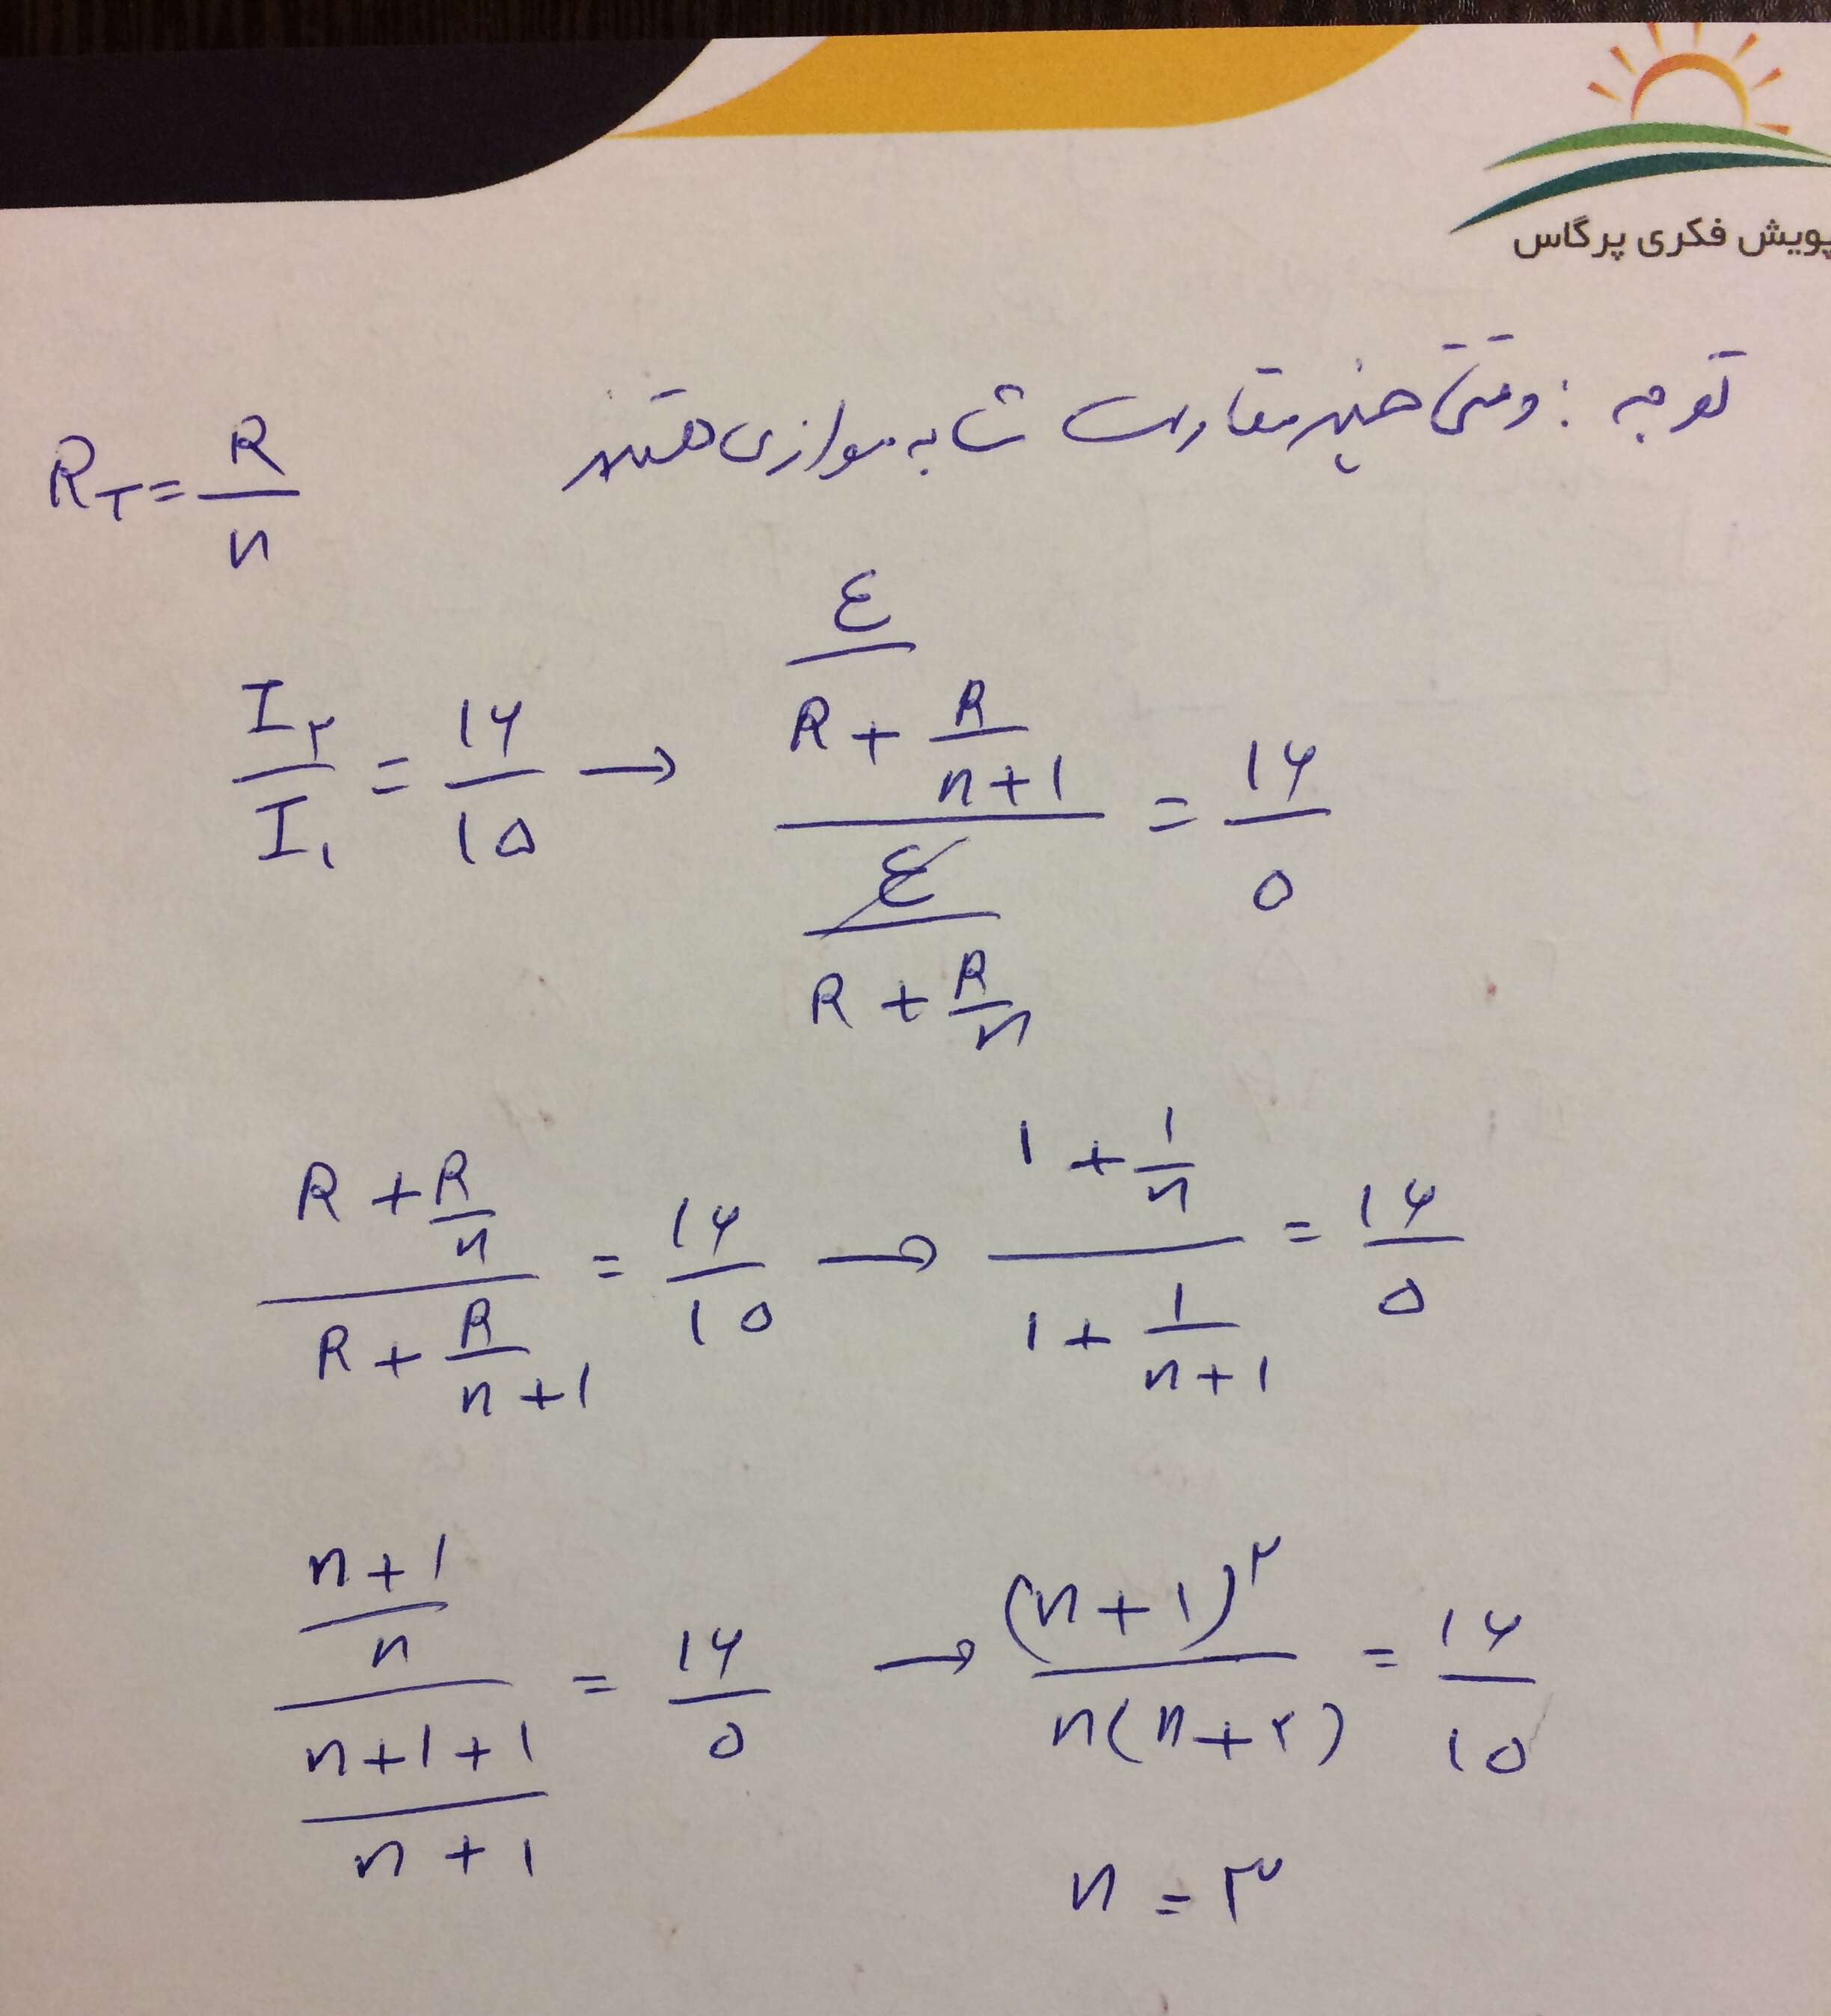 پویش فکری پرگاس
توجه : وقتی چند مقاومت مشابه موازی هستند
R_T = R/n
I_۲/I_۱ = ۱۶/۱۵ → (ε/(R + R/(n+۱)))/(ε/(R + R/n)) = ۱۶/۵
(R + R/n)/(R + R/(n+۱)) = ۱۶/۱۵ → (۱ + ۱/n)/(۱ + ۱/(n+۱)) = ۱۶/۵
((n+۱)/n)/((n+۱+۱)/(n+۱)) = ۱۶/۵ → (n+۱)^۲/(n(n+۲)) = ۱۶/۱۵
n = ۳